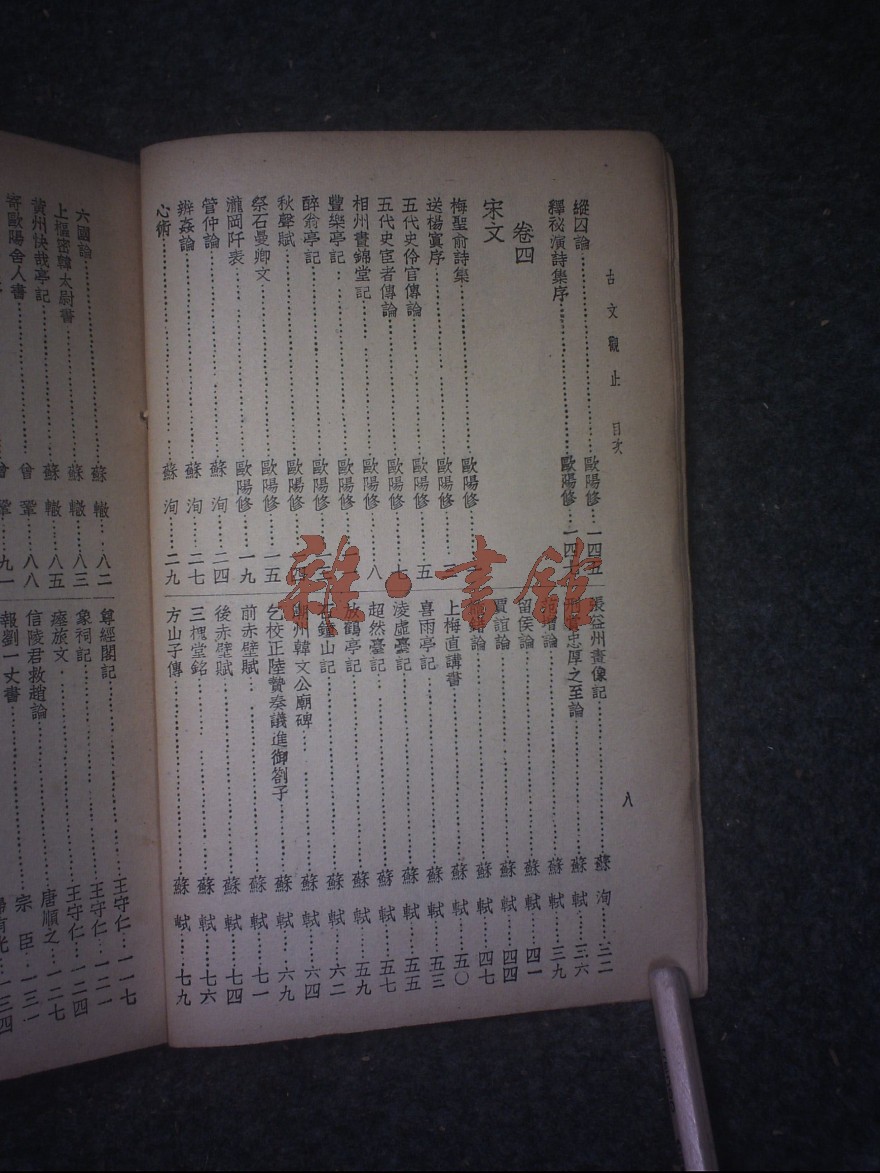 古文觀止 目次
八
縱囚論 歐陽修 一四五
釋祕演詩集序 歐陽修 一四七
卷四
宋文
梅聖俞詩集 歐陽修
送楊寘序 歐陽修
五代史伶官傳論 歐陽修 五
五代史宦者傳論 歐陽修 七
相州晝錦堂記 歐陽修 八
豐樂亭記 歐陽修
醉翁亭記 歐陽修
秋聲賦 歐陽修
祭石曼卿文 歐陽修 一五
瀧岡阡表 歐陽修 一九
管仲論 蘇洵 二四
辨姦論 蘇洵 二七
心術 蘇洵 二九
張益州畫像記 蘇洵 三二
忠厚之至論 蘇軾 三六
論 蘇軾 三九
留侯論 蘇軾 四一
賈誼論 蘇軾 四四
論 蘇軾 四七
上梅直講書 蘇軾 五〇
喜雨亭記 蘇軾 五三
淩虛臺記 蘇軾 五五
超然臺記 蘇軾 五七
放鶴亭記 蘇軾 五九
石鐘山記 蘇軾 六二
潮州韓文公廟碑 蘇軾 六四
乞校正陸贄奏議進御劄子 蘇軾 六九
前赤壁賦 蘇軾 七一
後赤壁賦 蘇軾 七四
三槐堂銘 蘇軾 七六
方山子傳 蘇軾 七九
六國論 蘇轍 八二
上樞密韓太尉書 蘇轍 八三
黃州快哉亭記 蘇轍 八五
寄歐陽舍人書 曾鞏 八八
曾鞏 九一
尊經閣記 王守仁 一一七
象祠記 王守仁 一二一
瘞旅文 王守仁 一二四
信陵君救趙論 唐順之 一二七
報劉一丈書 宗臣 一三一
歸有光 一三四
雜·書館